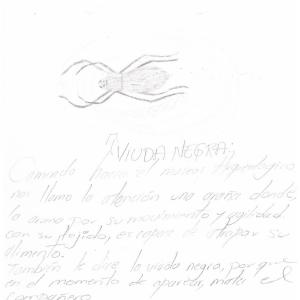 ¡VIUDA NEGRA!
Caminado hacia el museo Arqueologico
nos llamo la atención una araña donde
la araña por su movimiento y agilidad
con su tejido, es capaz de atrapar su
alimento.
También le dice la viuda negra, por que
en el momento de aparear, mata el
compañero